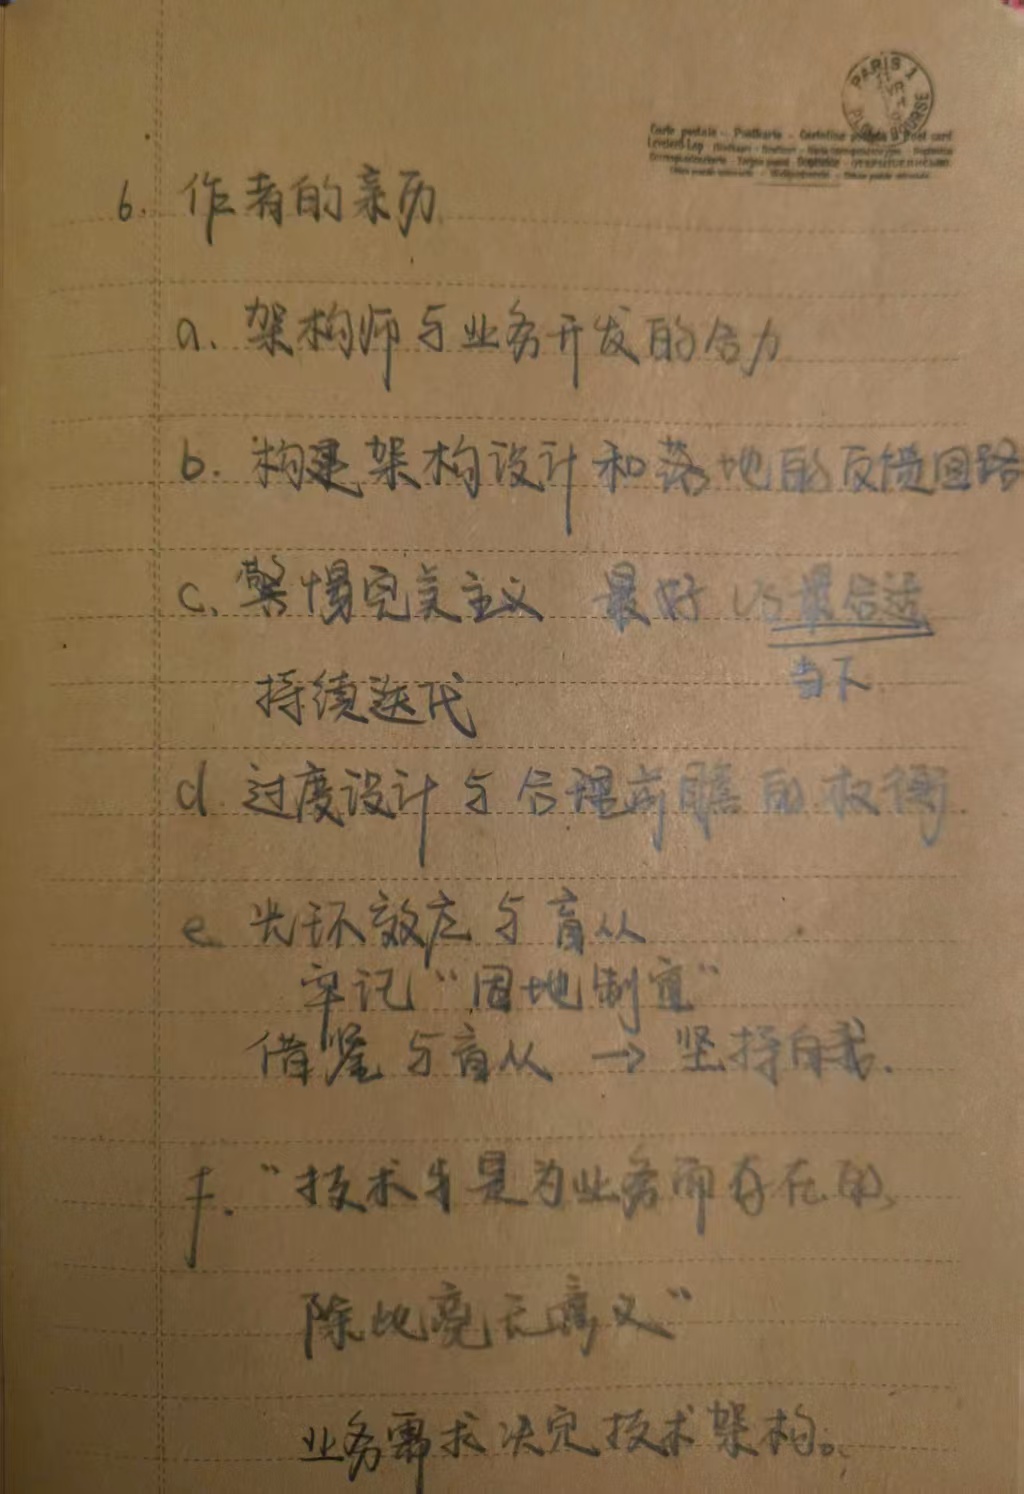 PARIS 1
Carte postale - Postkarte - Cartolina postale - Post card
6. 作者的亲历
a. 架构师与业务开发的合力
b. 构建架构设计和落地的反馈回路
c. 警惕完美主义 最好 VS 最合适
当下
持续迭代
d. 过度设计与合理前瞻的权衡
e. 光环效应与盲从
牢记“因地制宜”
借鉴与盲从 → 坚持自我.
f. “技术是为业务而存在的,
除此毫无意义”
业务需求决定技术架构。